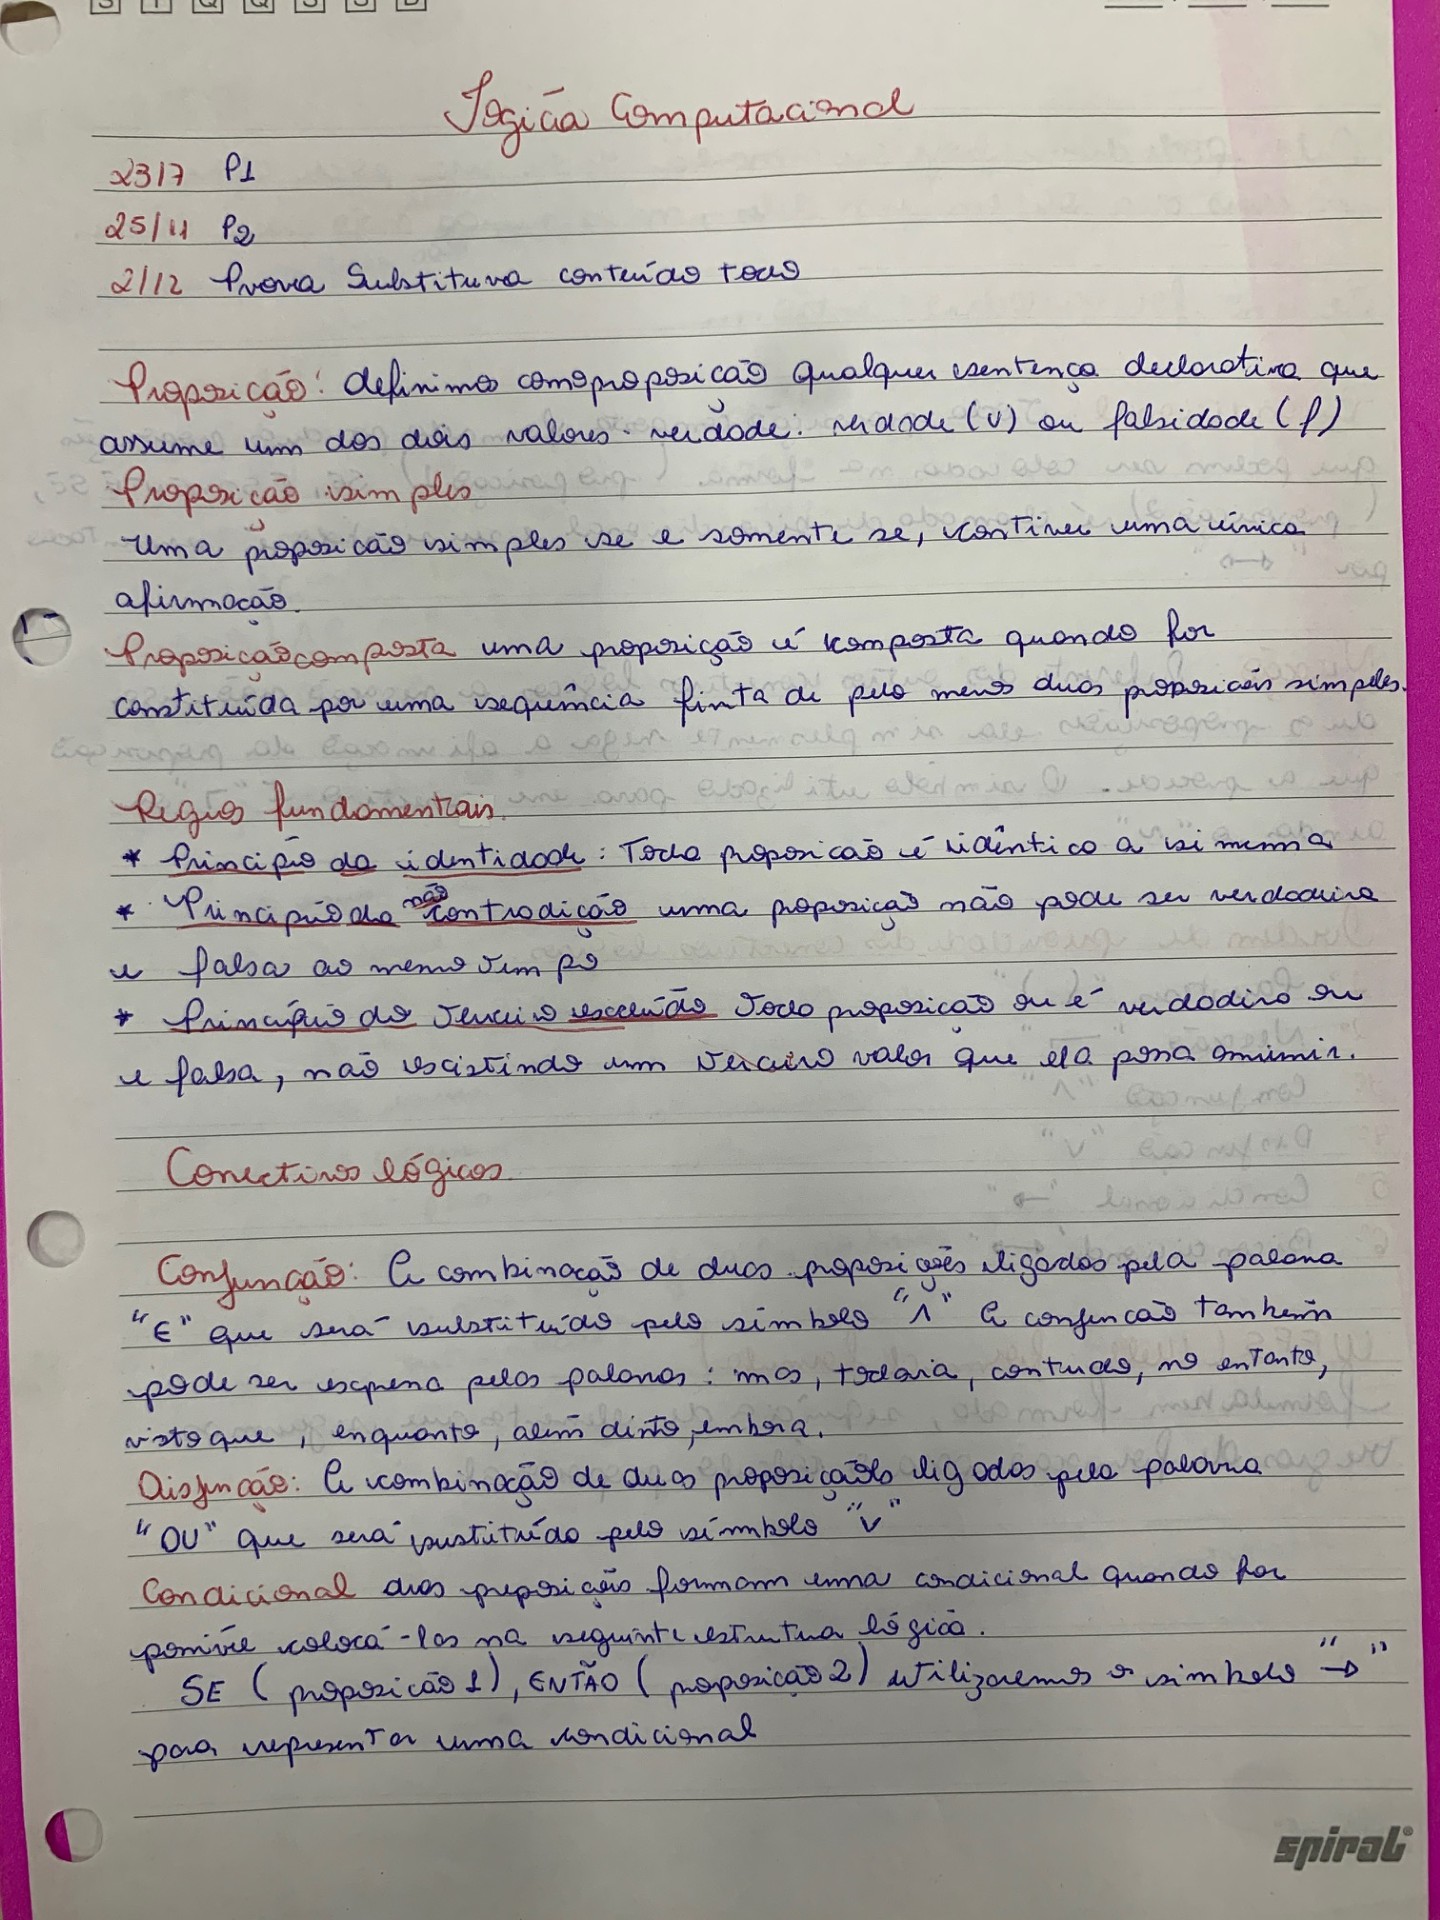 S T Q Q S S D
Lógica Computacional
23/7 P1
25/11 P2
2/12 Prova Substituva conteúdo todo
Proposição: definimos como proposição qualquer sentença declarativa que
assume um dos dois valores - verdade: verdade (V) ou falsidade (f)
Proposição simples
Uma proposição simples se e somente se, contiver uma única
afirmação.
Proposição composta uma proposição é composta quando for
constituída por uma sequência finta de pelo menos duas proposições simples.
Regras fundamentais.
* Princípio da identidade: Toda proposição é idêntico a si mesma
* Princípio da não contradição uma proposição não pode ser verdadeira
e falsa ao mesmo tempo
* Princípio do terceiro excluído Toda proposição ou é verdadeiro ou
e falsa, não existindo um terceiro valor que ela possa assumir.
Conectivos lógicos
Conjunção: A combinação de duas proposições ligadas pela palavra
"E" que será substituído pelo símbolo "∧" A conjunção também
pode ser expressa pelas palavras: mas, todavia, contudo, no entanto,
visto que, enquanto, além disto, embora.
Disjunção: A combinação de duas proposições ligadas pela palavra
"OU" que será sustituído pelo símbolo "v"
Condicional duas proposições formam uma condicional quando for
possível colocá-las na seguinte estrutura lógica.
SE (proposição 1), ENTÃO (proposição 2) utilizaremos o símbolo "→"
para representar uma condicional
spiral®